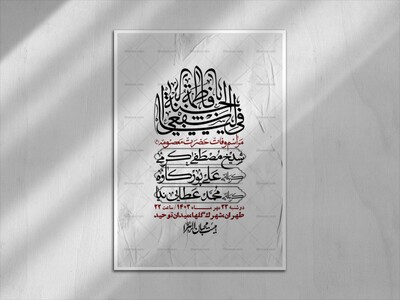 یا فاطمة اشفعی لی فی الجنة
مراسم وفات حضرت معصومه
شیخ مصطفی کرمی
کربلایی علی پورکاوه
کربلایی محمد عطایی نیا
دوشنبه ۲۳ مهر ماه ۱۴۰۳ / ساعت ۲۲
طهران شهرک گلها میدان توحید